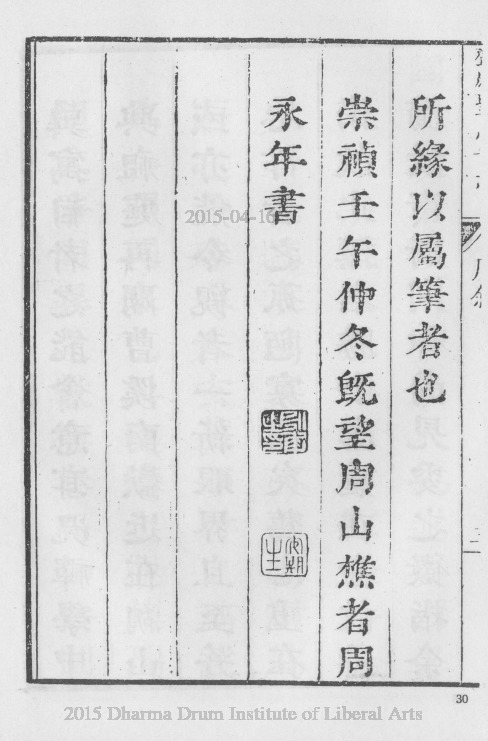 所緣以屬筆者也
崇禎壬午仲冬既望周山樵者周
永年書
2015-04-16
30
2015 Dharma Drum Institute of Liberal Arts